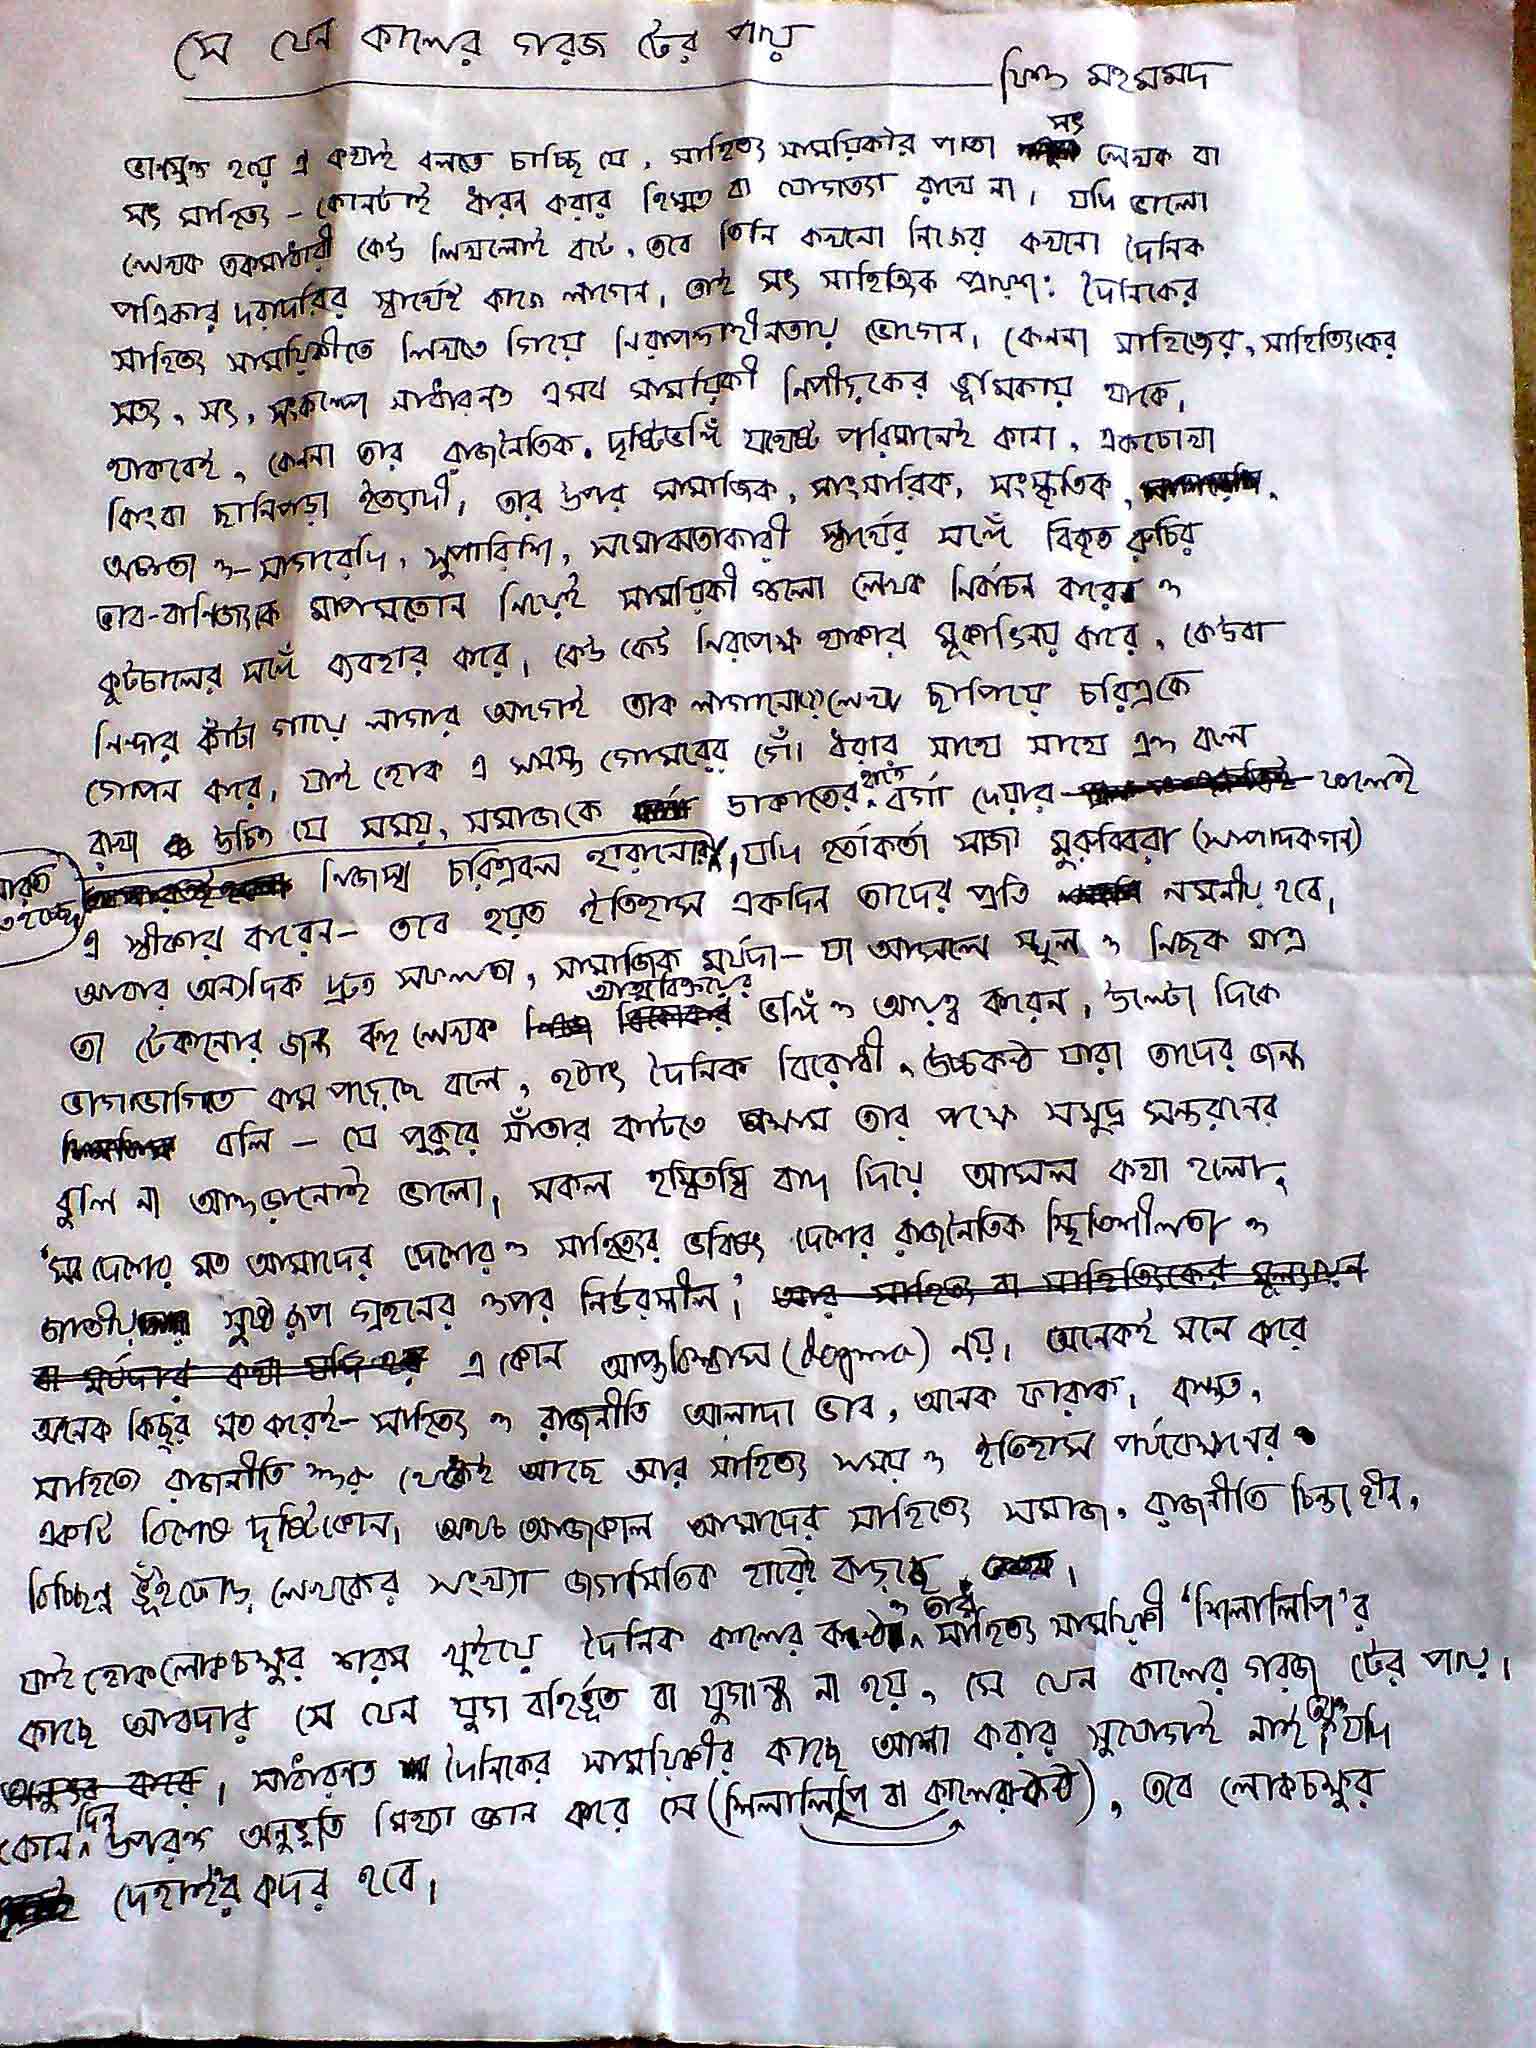 সে যেন কালের গরজ টের পায়
যিশু মহমমদ
হয়ে এ কথাই বলতে চাচ্ছি যে, সাহিত্য সাময়িকীর পাতা সৎ লেখক বা
সৎ সাহিত্য - কোনটাই ধারন করার হিম্মত বা যোগ্যতা রাখে না। যদি ভালো
লেখক তকমাধারী কেউ লিখলোই বটে, তবে তিনি কখনো নিজের কখনো দৈনিক
পত্রিকার দরাদরির স্বার্থেই কাজে লাগেন। তাই সৎ সাহিত্যিক প্রায়শ: দৈনিকের
সাহিত্য সাময়িকীতে লিখতে গিয়ে নিরাপত্তাহীনতায় ভোগেন। কেননা সাহিত্যের, সাহিত্যিকের
সত্য, সৎ, সংকল্পে সাধারনত এসব সাময়িকী নিপীড়কের ভূমিকায় থাকে।
থাকবেই, কেননা তার রাজনৈতিক দৃষ্টিভঙ্গি যথেষ্ট পরিমানেই কানা, একচোখা
কিংবা ছানিপড়া ইত্যাদী। তার উপর সামাজিক, সাংসারিক, সংস্কৃতিক,
অজ্ঞতা ও সাগরেদি, সুপারিশি, সমোঝতাকারী স্বার্থের সঙ্গে বিকৃত রুচির
ভাব-বানিজ্যকে মাপমতোন নিয়েই সাময়িকী গুলো লেখক নির্বাচন করে ও
কূটচালের সঙ্গে ব্যবহার করে। কেউ কেউ নিরপেক্ষ থাকার মূকাভিনয় করে, কেউবা
নিন্দার কাঁটা গায়ে লাগার আগেই তাক লাগানো লেখা ছাপিয়ে চরিত্রকে
গোপন করে। যাই হোক এ সমস্ত গোমরের গোঁ ধরার সাথে সাথে এও বলে
রাখা উচিত যে সময়, সমাজকে ডাকাতের হাতে বর্গা দেয়ার ফলেই
নিজস্ব চরিত্রবল হারানোর। যদি হর্তাকর্তা সাজা মুরুব্বিরা (সম্পাদকগন)
এ স্বীকার করেন - তবে হয়ত ইতিহাস একদিন তাদের প্রতি নমনীয় হবে।
আবার অন্যদিক দ্রুত সফলতা, সামাজিক মর্যদা - যা আসলে স্থুল ও নিছক মাত্র
তা টেকানোর জন্য বহু লেখক আত্মবিক্রয়ের ভঙ্গি ও আয়ত্ব করেন। উল্টো দিকে
ভাগাভাগিতে কম পড়েছে বলে, হঠাৎ দৈনিক বিরোধী, উচ্চকন্ঠ যারা তাদের জন্য
বলি - যে পুকুরে সাঁতার কাটতে অক্ষম তার পক্ষে সমুদ্র সন্তরনের
বুলি না আওড়ানোই ভালো। সকল হম্বিতম্বি বাদ দিয়ে আসল কথা হলো,
'সব দেশের মত আমাদের দেশের ও সাহিত্যের ভবিষ্যৎ দেশের রাজনৈতিক স্থিতিশীলতা ও
জাতীয় সুষ্ঠ রূপ গ্রহনের ওপর নির্ভরশীল।' আর সাহিত্য বা সাহিত্যিকের মূল্যায়ন
বা মর্যদার কথা যদি হয় এ কোন আপ্তবিশ্বাস (dogma) নয়। অনেকই মনে করে
অনেক কিছুর মত করেই - সাহিত্য ও রাজনীতি আলাদা ভাব, অনেক ফারাক। বস্তুত,
সাহিত্যে রাজনীতি শুরু থেকেই আছে আর সাহিত্য সময় ও ইতিহাস পর্যবেক্ষনের
একটি বিশেষ দৃষ্টিকোন। অথচ আজকাল আমাদের সাহিত্যে সমাজ, রাজনীতি চিন্তাহীন,
বিচ্ছিন্ন ভূঁইফোড় লেখকের সংখ্যা জ্যামিতিক হারেই বাড়ছে।
যাই হোক লোকচক্ষুর শরম থুইয়ে দৈনিক কালের কন্ঠ ও তার সাহিত্য সাময়িকী 'শিলালিপি'র
কাছে আবদার সে যেন যুগ বহির্ভূত বা যুগান্ধ না হয়, সে যেন কালের গরজ টের পায়।
অনুভব করে। সাধারনত দৈনিকের সাময়িকীর কাছে আশা করার সুযোগই নাই যদি
কোন দিন উপরন্ত অনুভূতি মিথ্যা জ্ঞান করে সে (শিলালিপি বা কালেরকন্ঠ), তবে লোকচক্ষুর
দেহাইর কদর হবে।